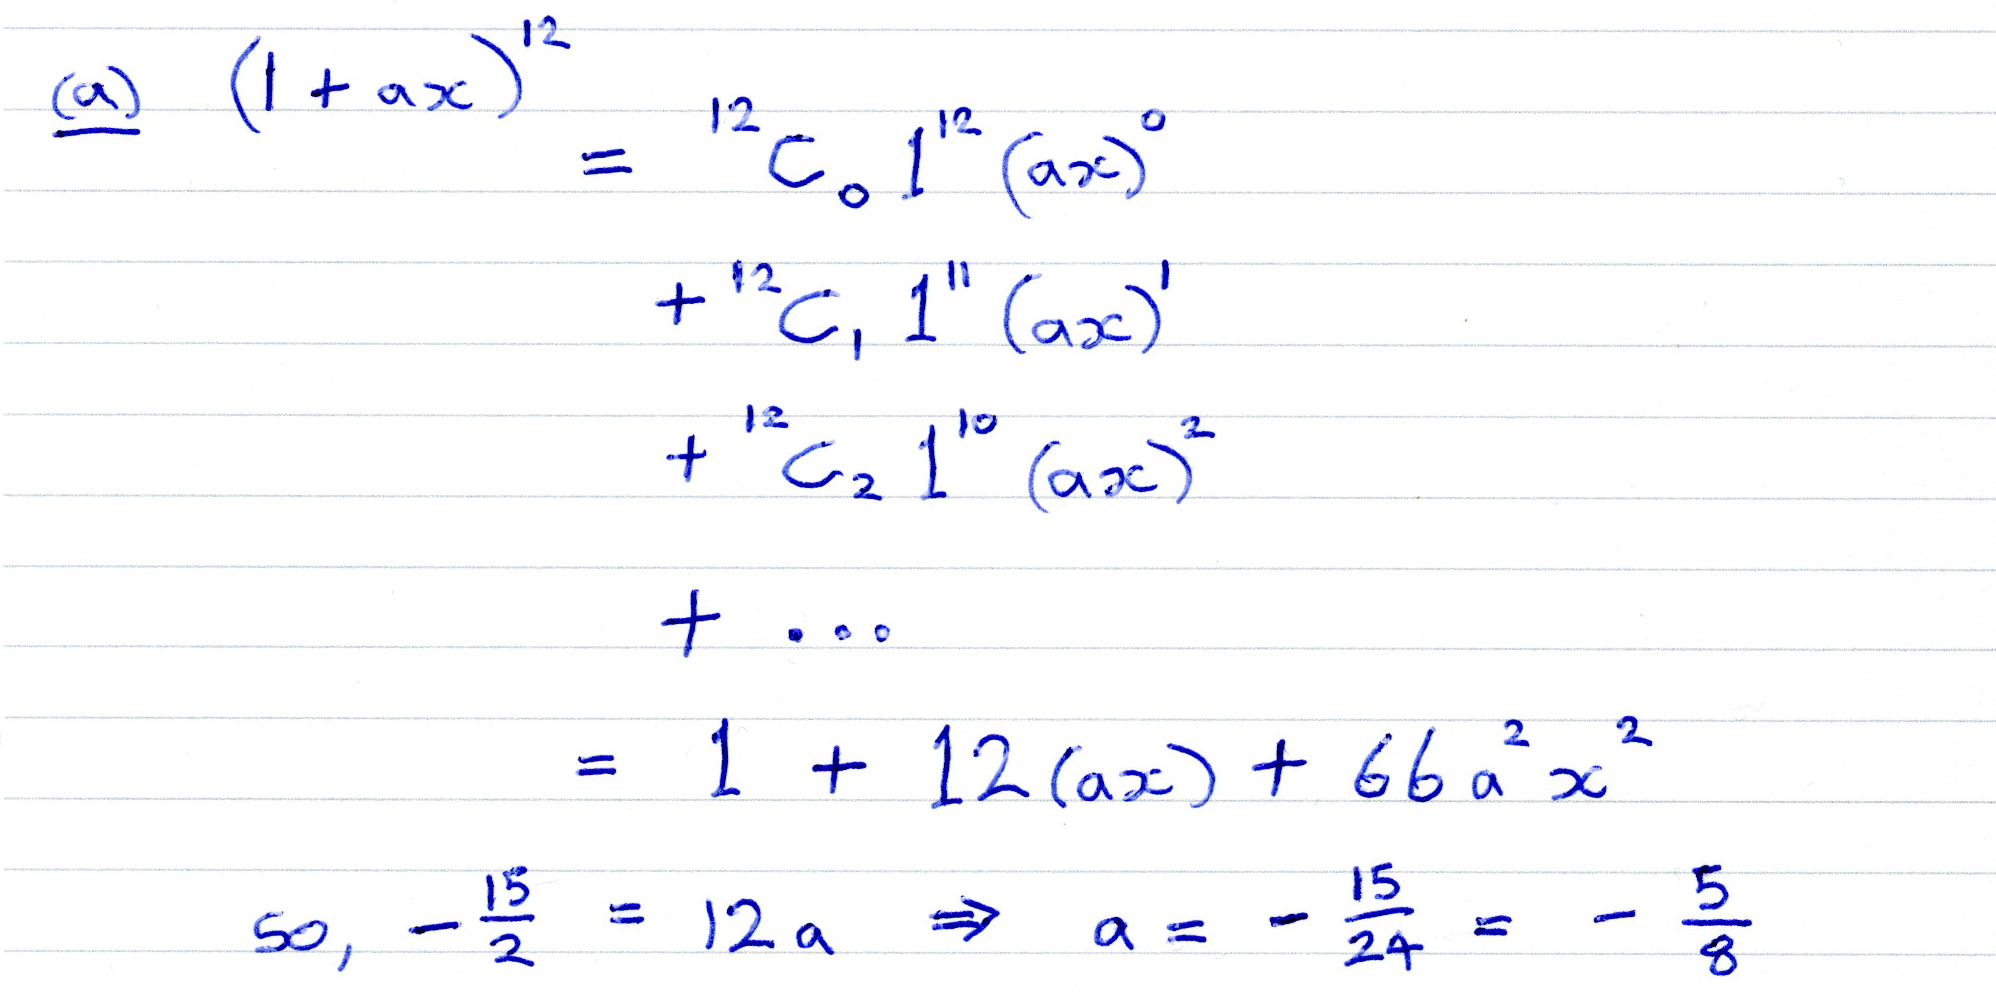 (a) (1 + ax)¹²
= ¹²C₀ 1¹² (ax)⁰
+ ¹²C₁ 1¹¹ (ax)¹
+ ¹²C₂ 1¹⁰ (ax)²
+ ...
= 1 + 12(ax) + 66a²x²
so, -15/2 = 12a ⇒ a = -15/24 = -5/8